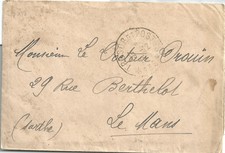 Monsieur Le Docteur Drouin
29 Rue Berthelot
Le Mans
(Sarthe)